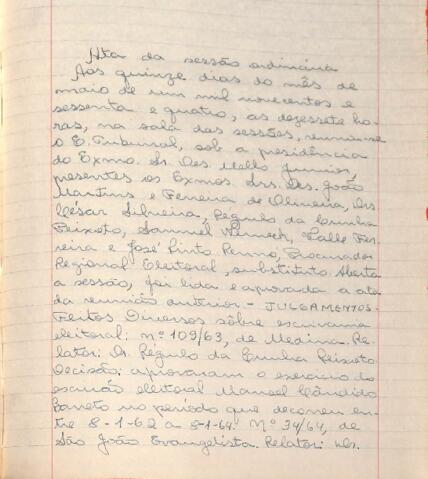 Ata da sessão ordinária
Aos quinze dias do mês de
maio de um mil novecentos e
sessenta e quatro, às dezessete ho-
ras, na sala das sessões, reune-se
o E. Tribunal, sob a presidência
do Exmo. Sr. Des. Mello Junior,
presentes os Exmos. Srs. Des. João
Martins e Ferreira de Oliveira, Drs
César Silveira, Régulo da Cunha
Peixoto, Samuel Werneck, Lalle Fer-
reira e José Pinto Renno, Procurador
Regional Eleitoral, substituto. Aberta
a sessão, foi lida e aprovada a ata
da reunião anterior - JULGAMENTOS -
Feitos Diversos sôbre escrivania
eleitoral: nº 109/63, de Medina. Re-
lator: Dr. Régulo da Cunha Peixoto
Decisão: aprovaram o exercício do
escrivão eleitoral Manoel Cândido
Barreto no período que decorreu en-
tre 8-1-62 a 8-1-64. Nº 34/64, de
São João Evangelista. Relator: Dr.